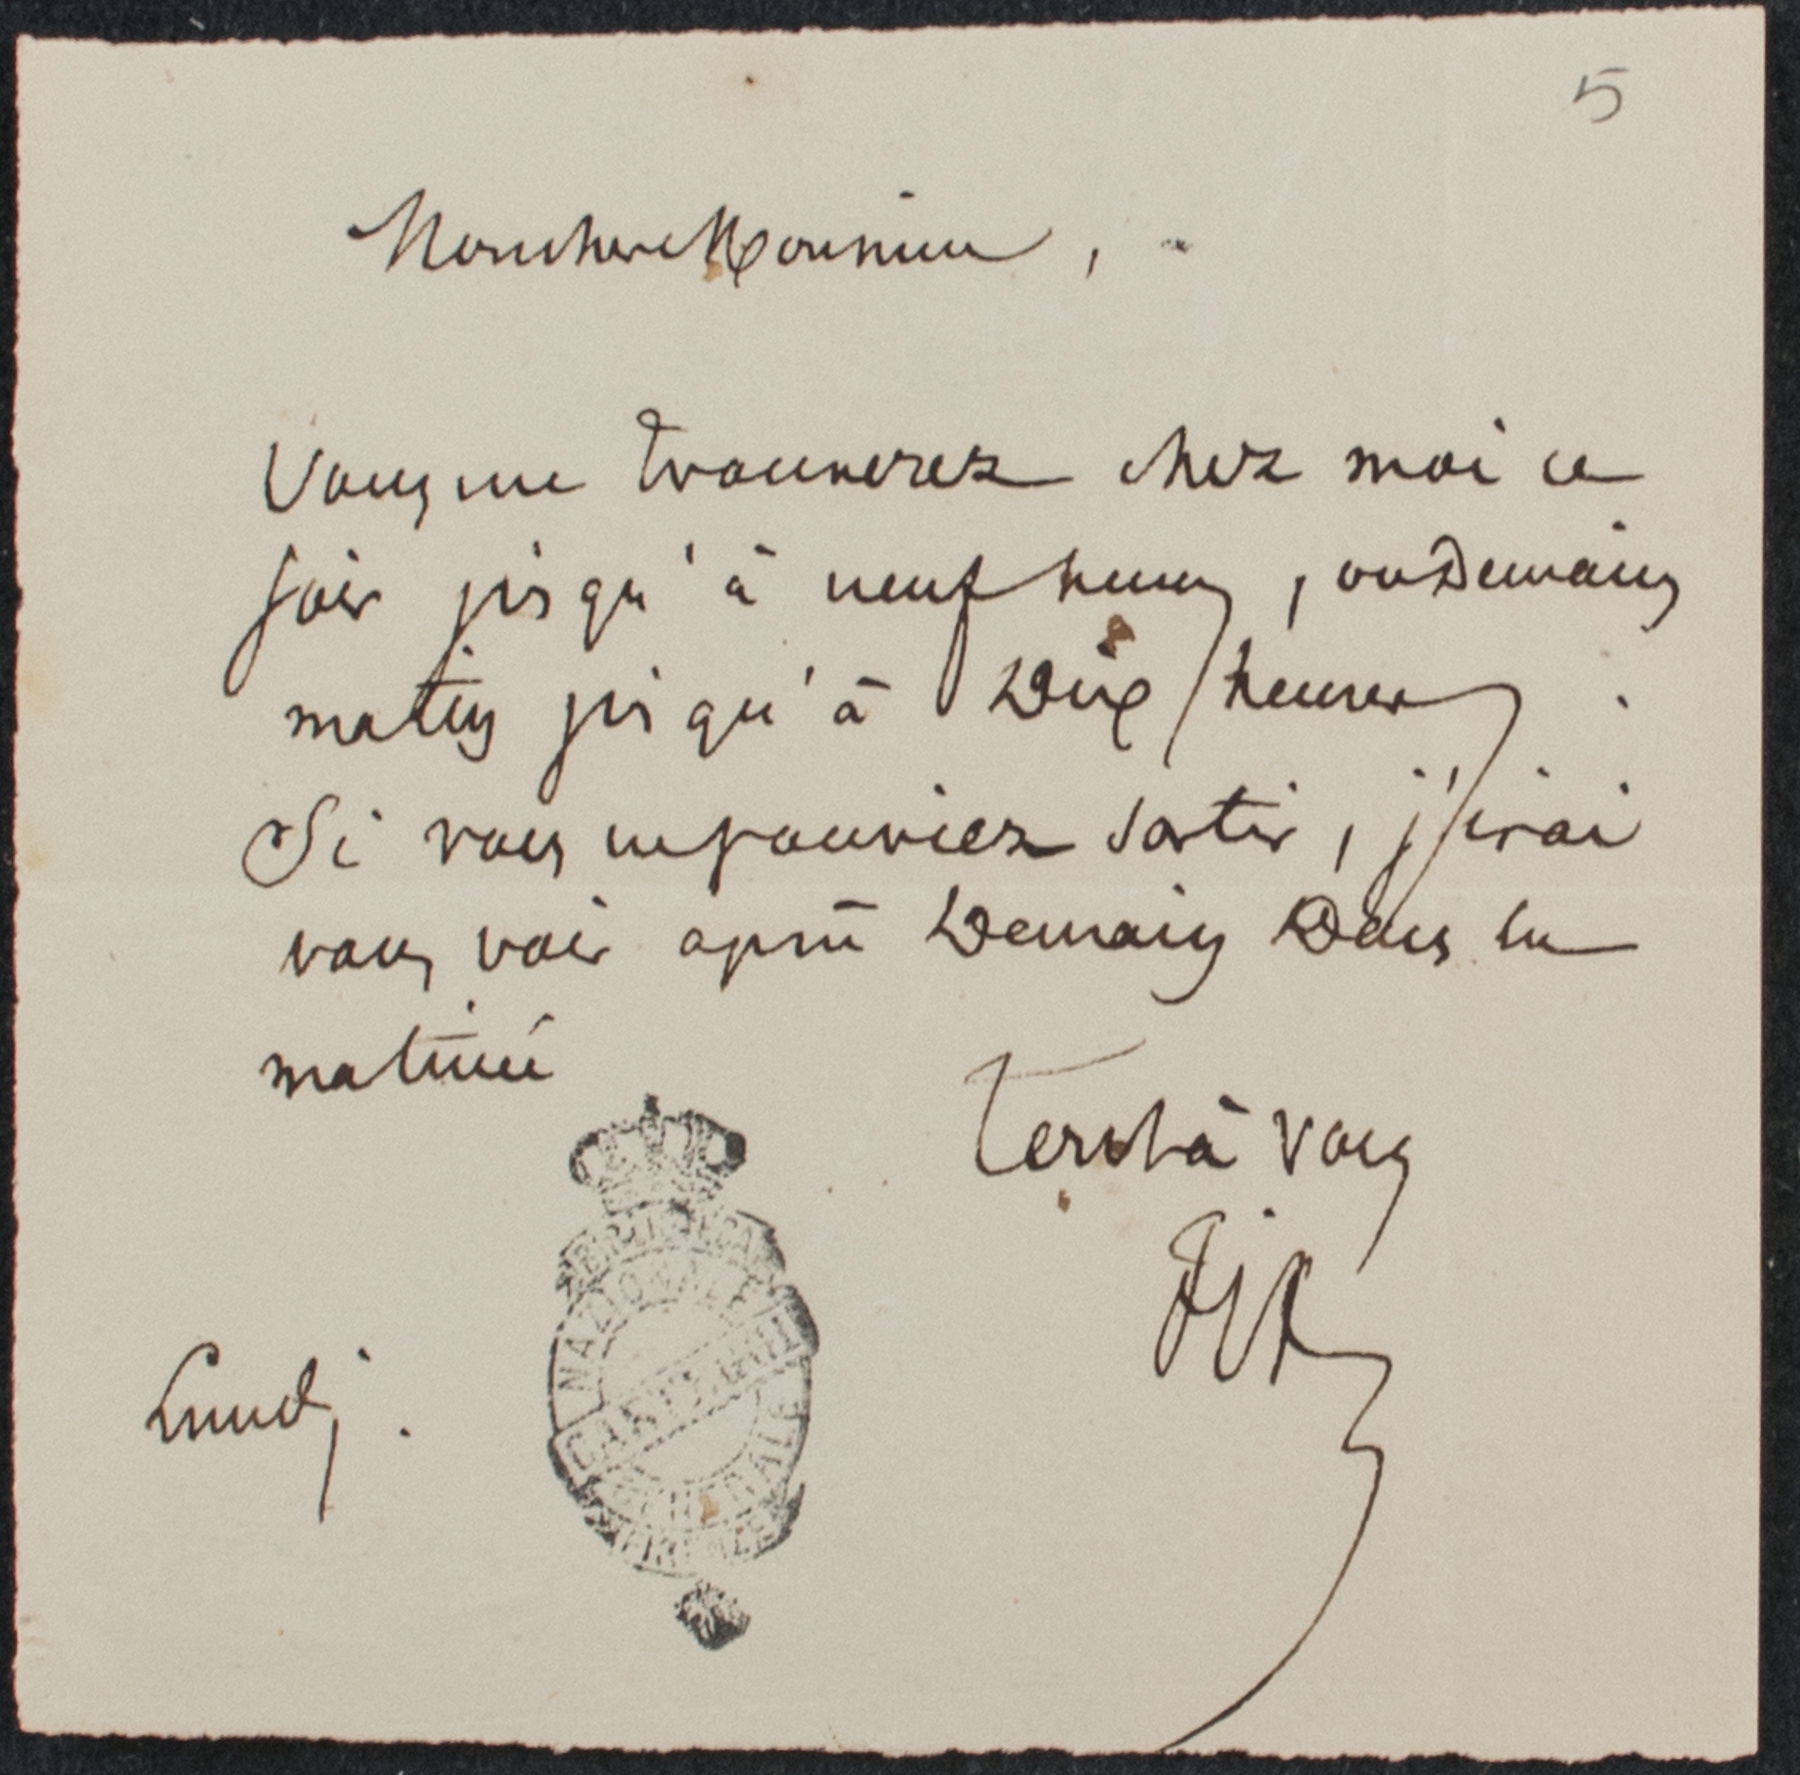 5
Mon cher Monsieur,
Vous me trouverez chez moi ce
soir jusqu'à neuf heures, ou demain
matin jusqu'à dix heures.
Si vous ne pouviez sortir, j'irai
vous voir après demain dans la
matinée
Tout à vous
Lundi.
BIBLIOTECA
NAZIONALE
CENTRALE
FIRENZE